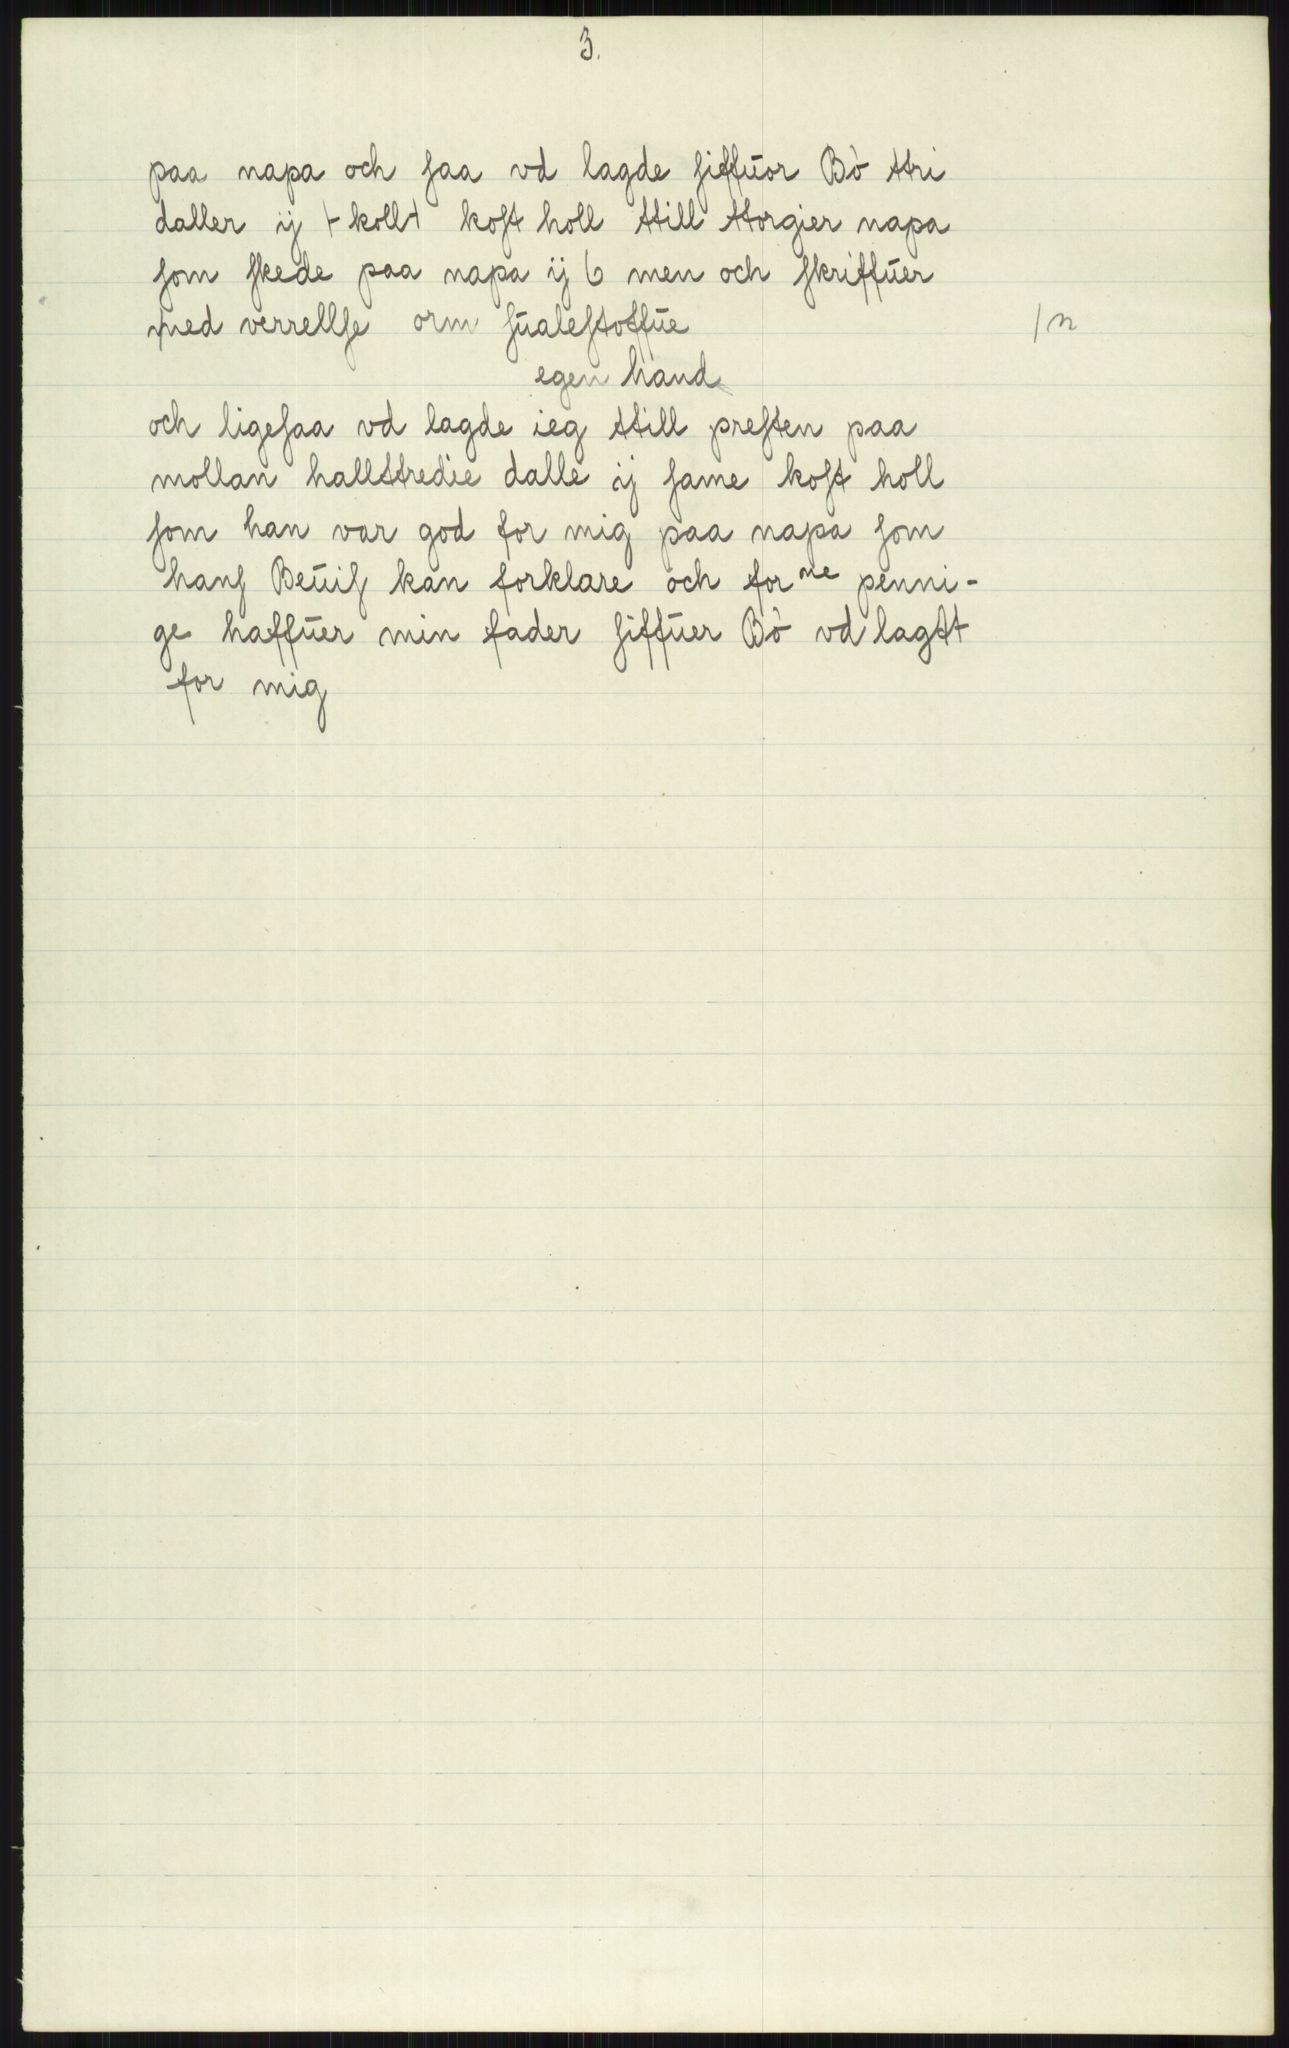 3.
paa napa och saa vd lagde siffuor Bò ttri
daller ij ⊢koll⊣ kost holl ttill ttorgier napa
som skede paa napa ij 6 men och skriffuer
med verrellse orm sualestoffue /n
egen hand
och ligesaa vd lagde ieg ttill presten paa
mollan hallttredie dalle ij same kost holl
som han var god for mig paa napa som
hans Beuis kan forklare och for ne penni-
ge haffuer min fader siffuer Bò vd lagtt
for mig